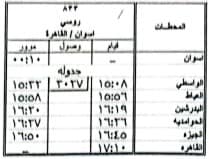 ٨٣٣
روسي
اسوان / القاهرة
المحطات
قيام وصول مرور
اسوان – ٠٠:١٠
جدوله
٣٠٢٧
الواسطي ١٥:٠٨ ١٥:٣٢
العياط ١٥:٥٦ ١٥:٥٨
البدرشين ١٦:١٩ ١٦:٢٠
الحوامديه ١٦:٢٦ ١٦:٢٧
الجيزه ١٦:٤٥ ١٦:٥٠
القاهره ١٧:١٠ –